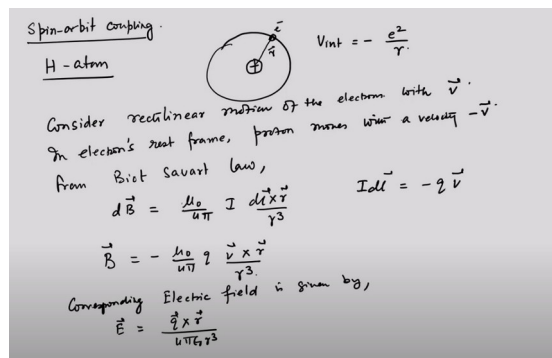 Spin-orbit coupling.
H-atom
e⁻
r⃗
+
V_int = - e²/r.
Consider rectilinear motion of the electron with v⃗.
In electron's rest frame, proton moves with a velocity -v⃗.
From Biot Savart law,
dB⃗ = μ₀/4π I dl⃗×r⃗/r³
Idl⃗ = -q v⃗
B⃗ = - μ₀/4π q v⃗ × r⃗/r³.
Corresponding Electric field is given by,
E⃗ = q⃗ × r⃗/4πϵ₀r³